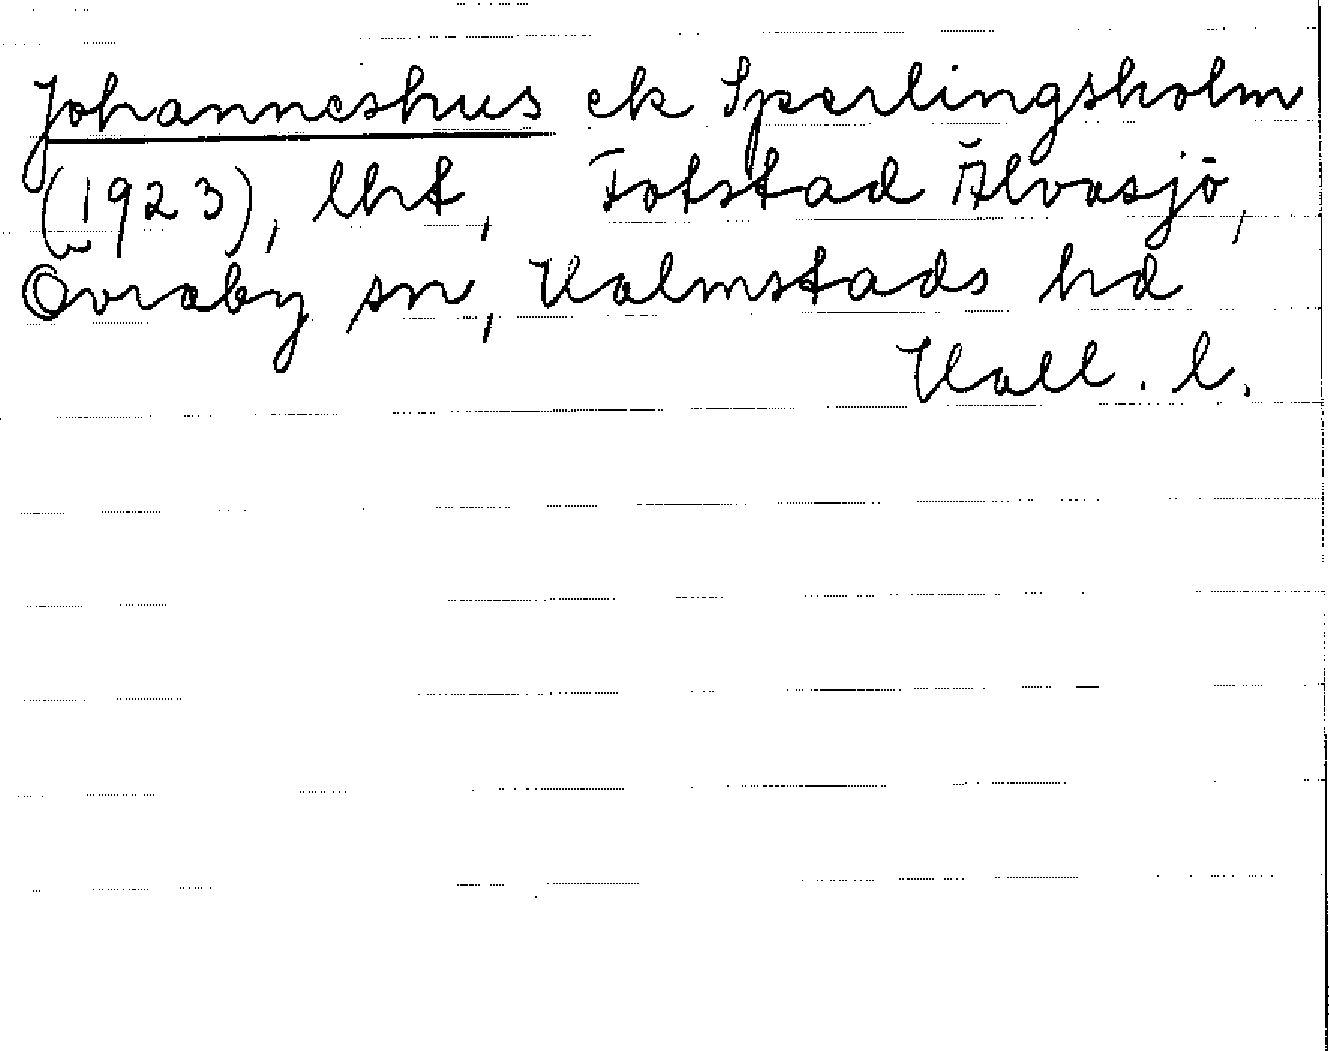 Johanneshus ek Sperlingsholm
(1923), lht, Fotstad Älvasjö,
Övraby sn, Halmstads hd
Hall. l.